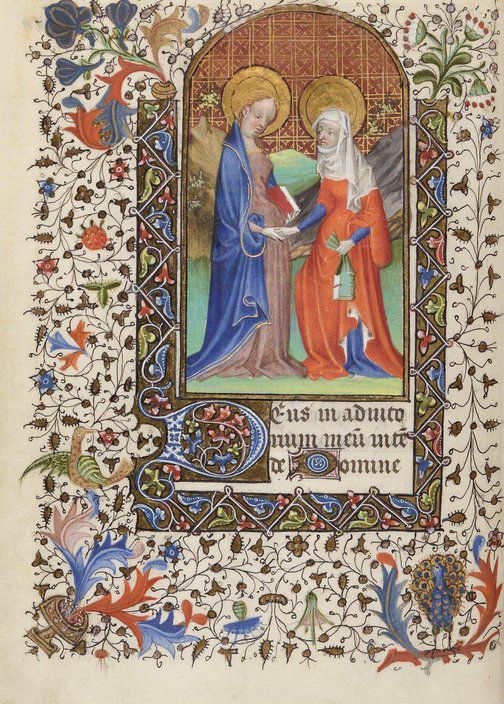 Deus in adiuto
rium meū inte
de Domine